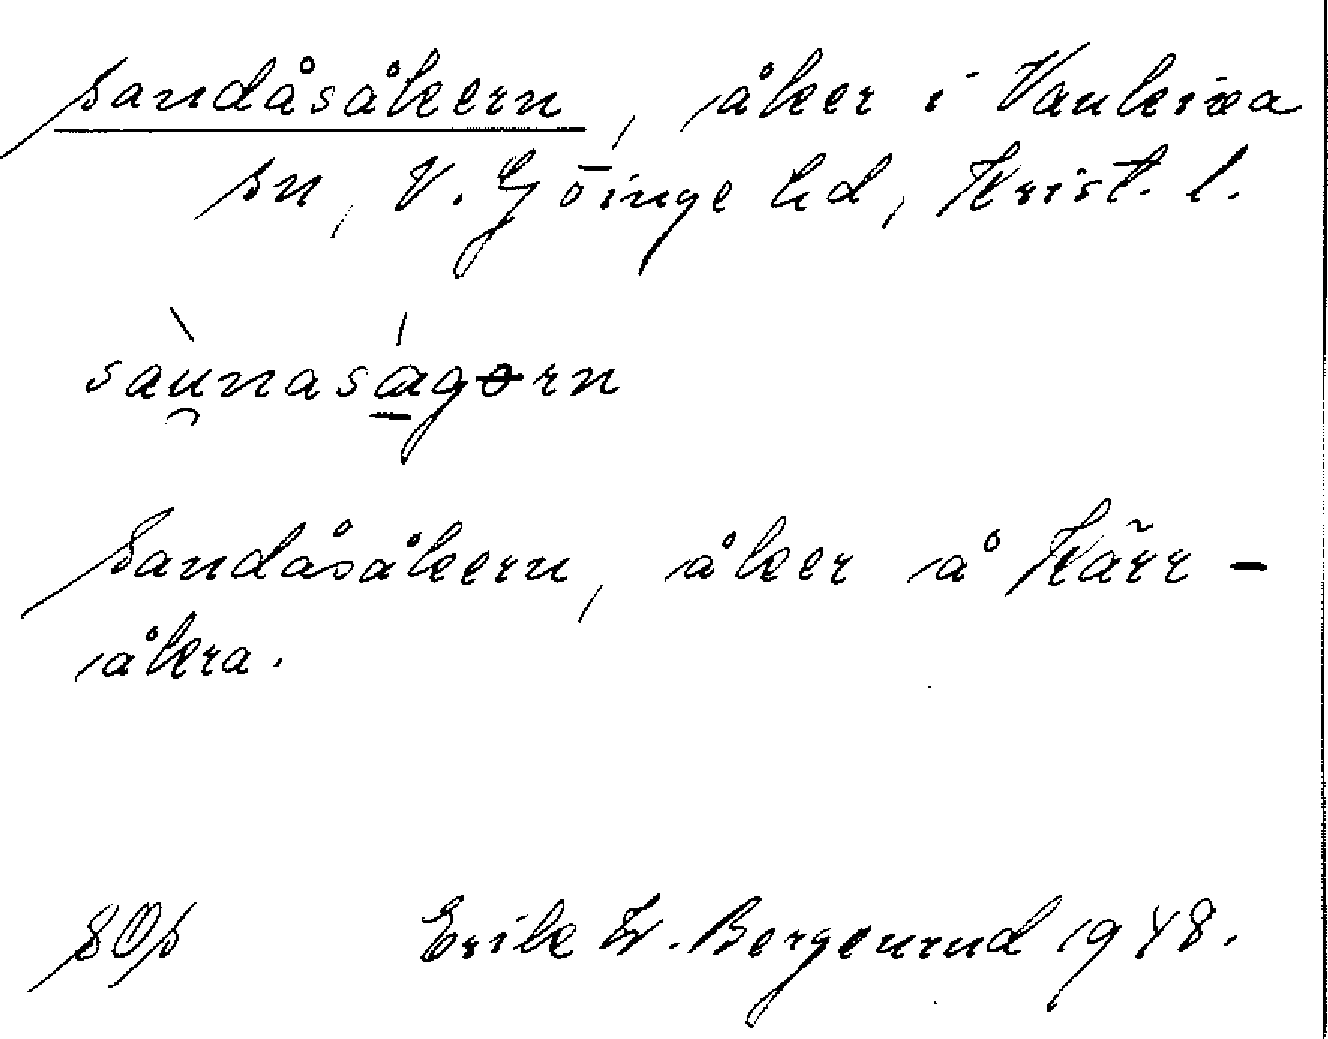 Sandåsåkern, åker i Vankiva
sn, V. Göinge hd, Krist. l.
sàu̯nasá̱gɵrn
Sandåsåkern, åker å Kärr-
åkra.
SOS Erik W. Bergenrud 1948.